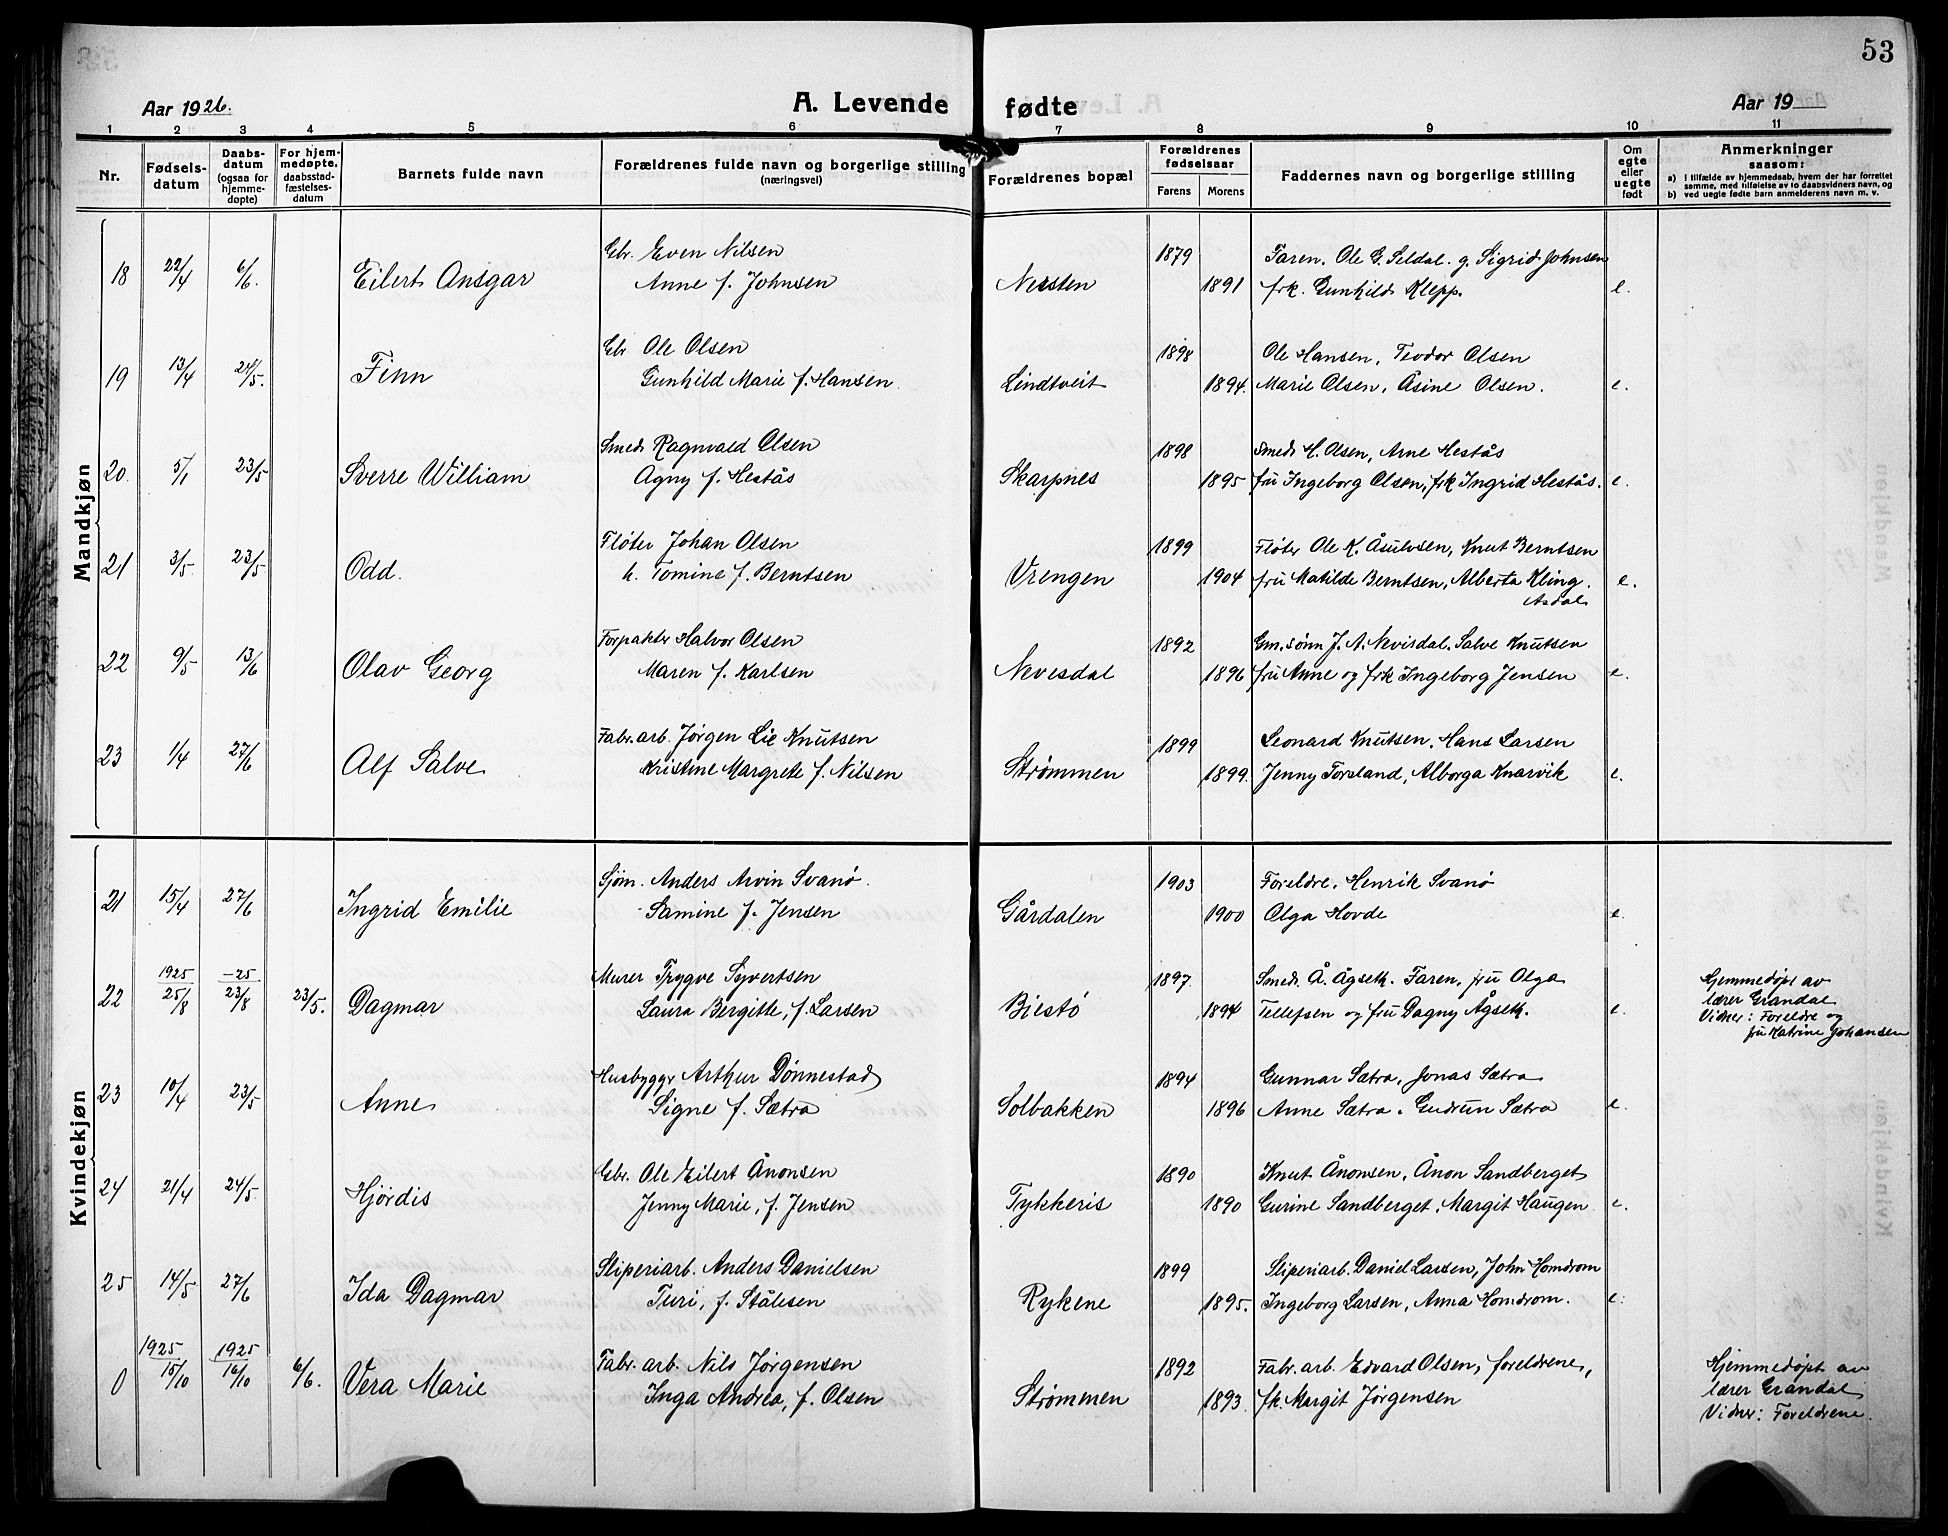 53
Aar 1926.
A. Levende fødte
Aar 19
1 2 3 4 5 6 7 8 9 10 11
Nr.
Fødsels-
datum
Daabs-
datum
(ogsaa for
hjemme-
døpte)
For hjem-
medøpte,
daabsstad-
fæstelses-
datum
Barnets fulde navn
Forældrenes fulde navn og borgerlige stilling
(næringsvei)
Forældrenes bopæl
Forældrenes
fødselsaar
Farens Morens
Faddernes navn og borgerlige stilling
Om
egte
eller
uegte
født
Anmerkninger
saasom:
a) i tilfælde av hjemmedaab, hvem der har forrettet
samme, med tilføielse av to daabsvidners navn, og
b) ved uegte fødte barn anmelderens navn m. v.
Mandkjøn
Gbr. Even Nilsen 1879 Faren. Ole G. Seldal. g. Sigrid Johnsen
18 22/4 6/6. Eilert Ansgar Anne f. Johnsen Nersten 1891 frk. Gunhild Klepp. e.
Gbr Ole Olsen 1898 Ole Hansen, Teodor Olsen
19 13/4 24/5. Finn Gunhild Marie f. Hansen. Lindtveit 1894. Marie Olsen, Åsine Olsen. e.
Smed Ragnvald Olsen 1898 Smed H. Olsen, Arne Hestås
20 5/1 23/5 Sverre William Agny f. Hestås Skarpnes 1895 fru Ingeborg Olsen, frk Ingrid Hestås. e.
Fløter Johan Olsen 1899 Fløter Ole K. Åsulvsen, Knut Berntsen
21 3/5. 23/5 Odd. h. Tomine f. Berntsen Vrengen 1904 fru Matilde Berntsen, Alberta Kling.
Asdal e.
Forpakter Halvor Olsen 1892 Gm. sønn J. A. Nevisdal. Salve Knutsen
22 9/5 13/6 Olav Georg Maren f. Karlsen Nevesdal 1896 fru Anne og frk Ingeborg Jensen e.
Fabr. arb. Jørgen Lie Knutsen 1899 Leonard Knutsen. Hans Larsen
23 1/4 27/6 Alf Salve Kristine Margrete f. Nilsen Strømmen 1899. Jenny Forsland, Alborga Knarvik e.
Kvindekjøn
Sjøm. Anders Arvin Svanø. 1903 Foreldre. Henrik Svanø
21 15/4 27/6 Ingrid Emilie Samine f. Jensen Gårdalen 1900 Olga Hovde e.
1925 -25 Murer Trygve Syvertsen 1897 Smed. Å. Ågseth. Faren. fru Olga Hjemmedøpt av
22 25/8 23/8 23/5. Dagmar Laura Bergitte, f. Larsen Biestø 1894 Tellefsen og fru Dagny Ågseth. e. lærer Grandal
Vidner: Foreldre og
fru Katrine Johansen
Husbyggr Arthur Dønnestad 1894 Gunnar Sætra, Jonas Sætra
23 10/4 23/5 Anne Signe f. Sætra Solbakken 1896 Anne Sætra. Gudrun Sætra e.
Gbr. Ole Eilert Ånonsen 1890 Knut Ånonsen, Ånon Sandberget
24 21/4 24/5. Hjördis Jenny Marie, f. Jensen Tykkeris 1890 Gurine Sandberget. Margit Haugen e.
Sliperiarb. Anders Danielsen 1899 Sliperiarb. Daniel Larsen, John Homdrom
25 14/5 27/6 Ida Dagmar Turi, f. Stålesen Rykene 1895. Ingeborg Larsen, Anna Homdrom. e.
1925 1925 Fabr. arb. Nils Jørgensen 1892 Fabr. arb. Edvard Olsen, foreldrene, Hjemmedøpt av
0 15/10 16/10 6/6. Vera Marie Inga Andrea, f. Olsen Strømmen 1893. fk. Margit Jørgensen lærer Grandal
Vidner: Foreldrene.